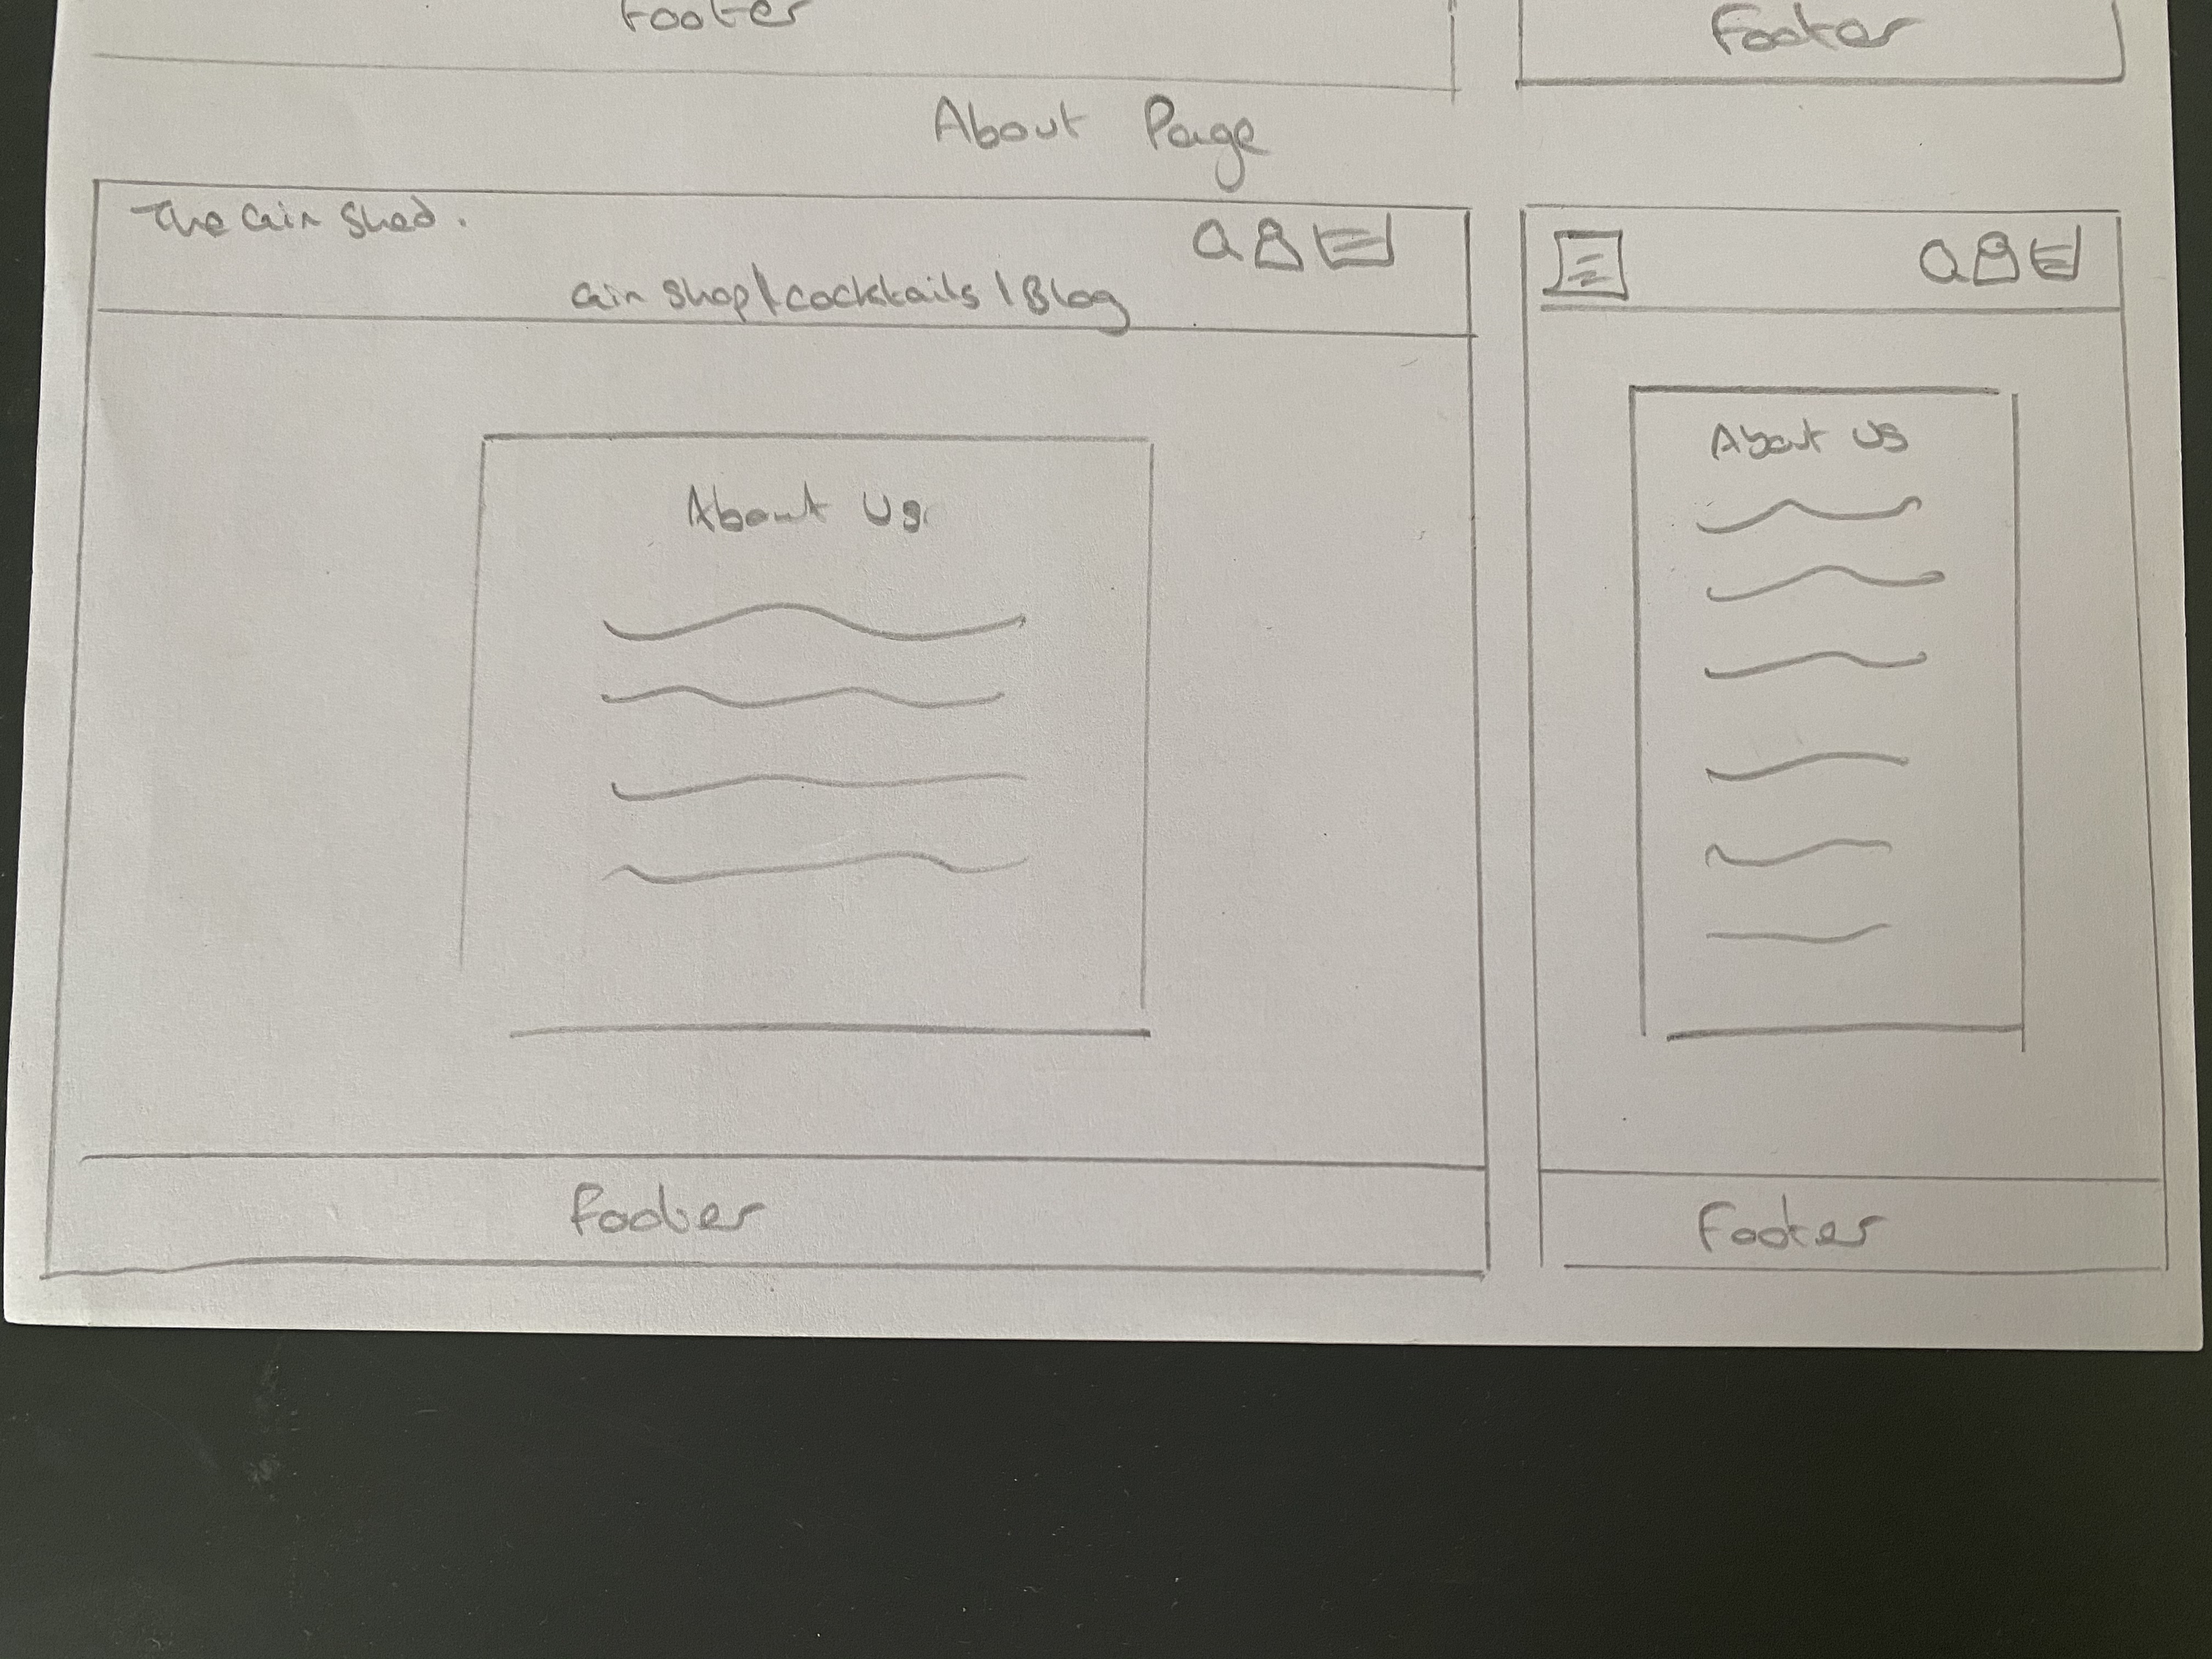 Footer
Footer
About Page
The Gin Shed.
Gin Shop|Cocktails|Blog
About Us
About Us
Footer
Footer